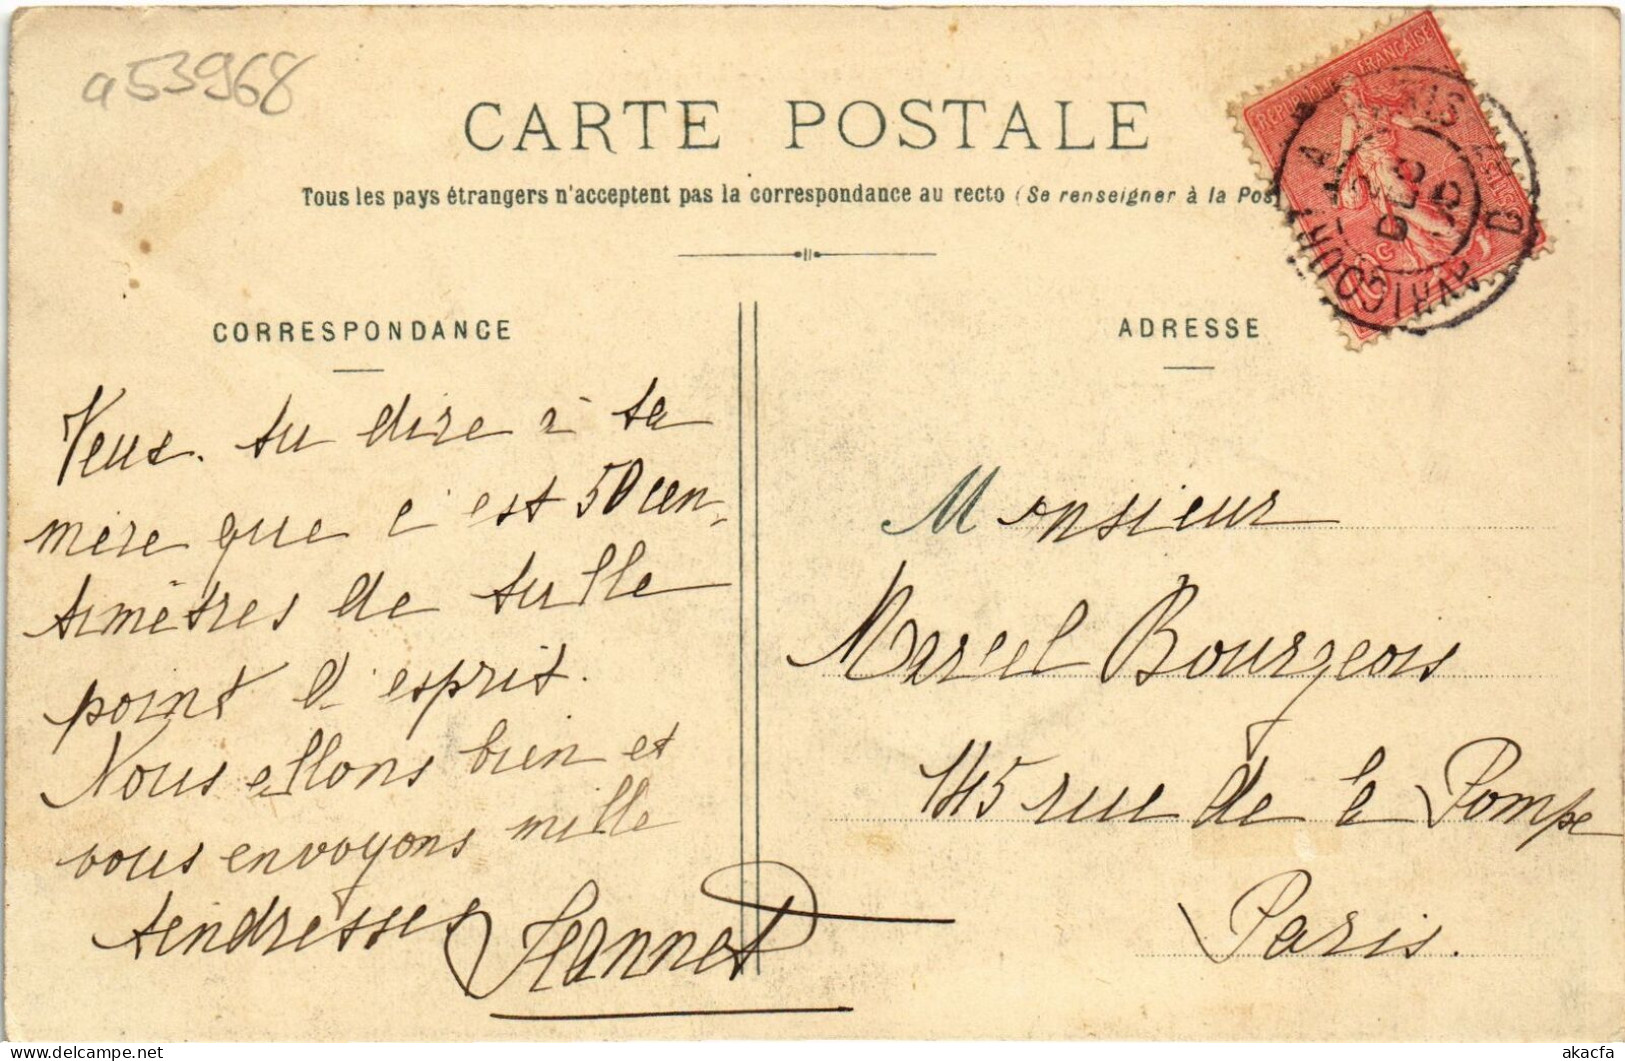 a53968
CARTE POSTALE
Tous les pays étrangers n'acceptent pas la correspondance au recto (Se renseigner à la Pos
REPUBLIQUE FRANÇAISE
AVRICOURT A PARIS
CORRESPONDANCE
ADRESSE
Veux. tu dire à ta
mère que c'est 50 cen-
timètres de tulle
point d'esprit.
Nous allons bien et
vous envoyons mille
tendresses Jeannet
Monsieur
Marcel Bourgeois
145 rue de la Pompe
Paris.
akacfa